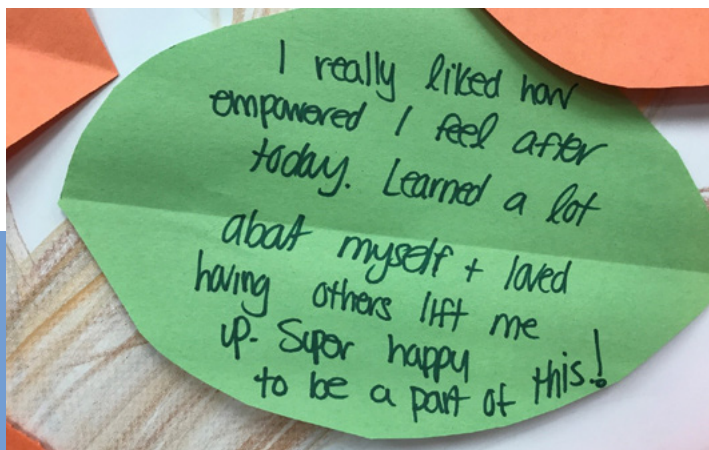 I really liked how
empowered I feel after
today. Learned a lot
about myself + loved
having others lift me
up. Super happy
to be a part of this!